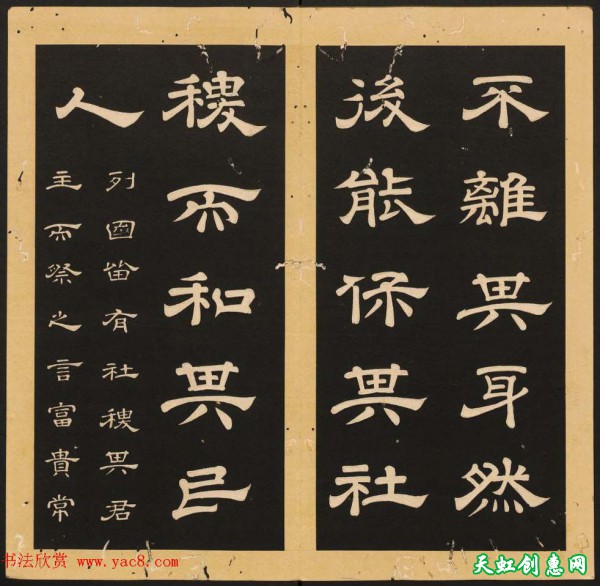 不離其身然
後能保其社
稷而和其民
人
列國皆有社稷其君
主而祭之言富貴常
书法欣赏 www.yac8.com
天虹创惠网